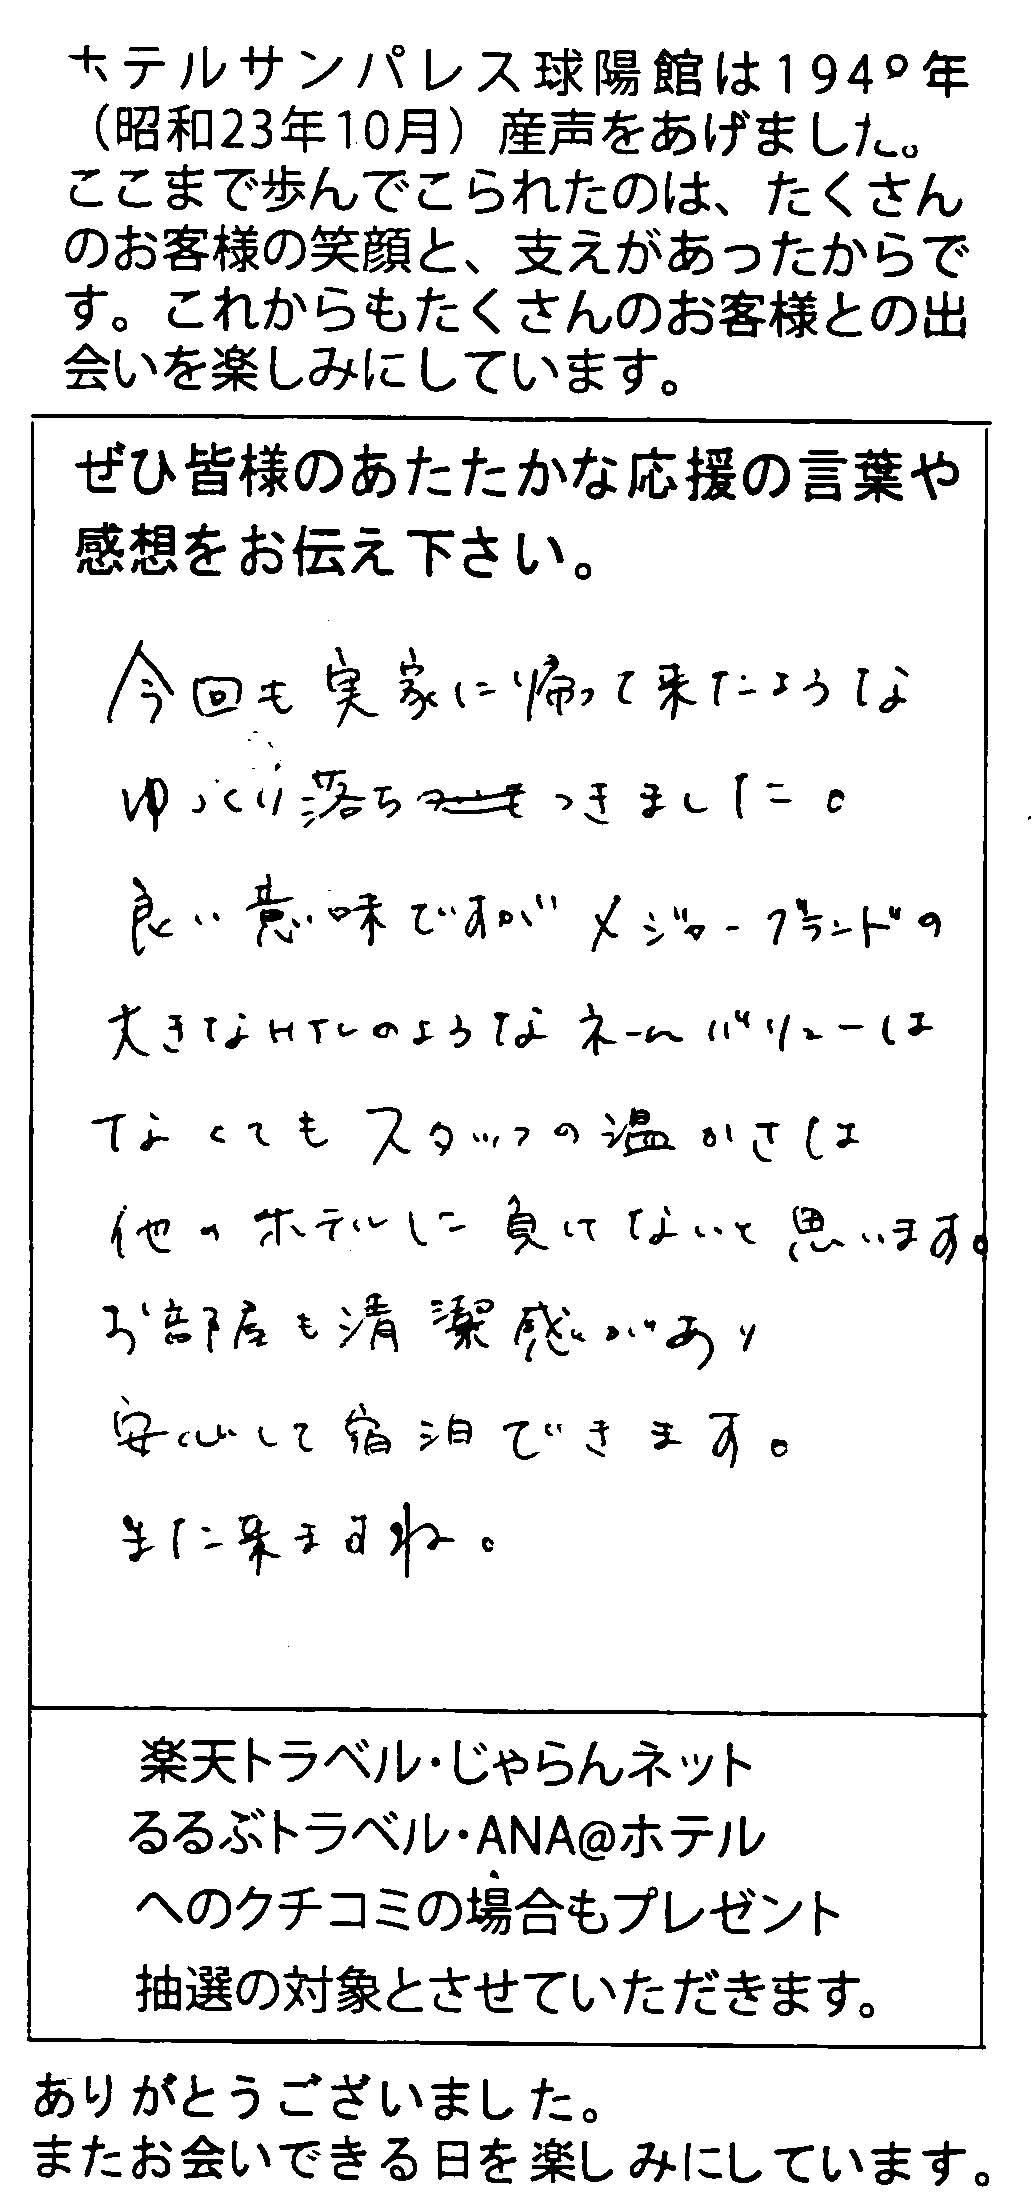 ホテルサンパレス球陽館は1948年
（昭和23年10月）産声をあげました。
ここまで歩んでこられたのは、たくさん
のお客様の笑顔と、支えがあったからで
す。これからもたくさんのお客様との出
会いを楽しみにしています。
ぜひ皆様のあたたかな応援の言葉や
感想をお伝え下さい。
今回も実家に帰って来たような
ゆっくり落ちつきました。
良い意味ですが メジャーブランドの
大きなHTLのようなネームバリューは
なくてもスタッフの温かさは
他のホテルに負けてないと思います。
お部屋も清潔感があり
安心して宿泊できます。
また来ますね。
楽天トラベル・じゃらんネット
るるぶトラベル・ANA@ホテル
へのクチコミの場合もプレゼント
抽選の対象とさせていただきます。
ありがとうございました。
またお会いできる日を楽しみにしています。